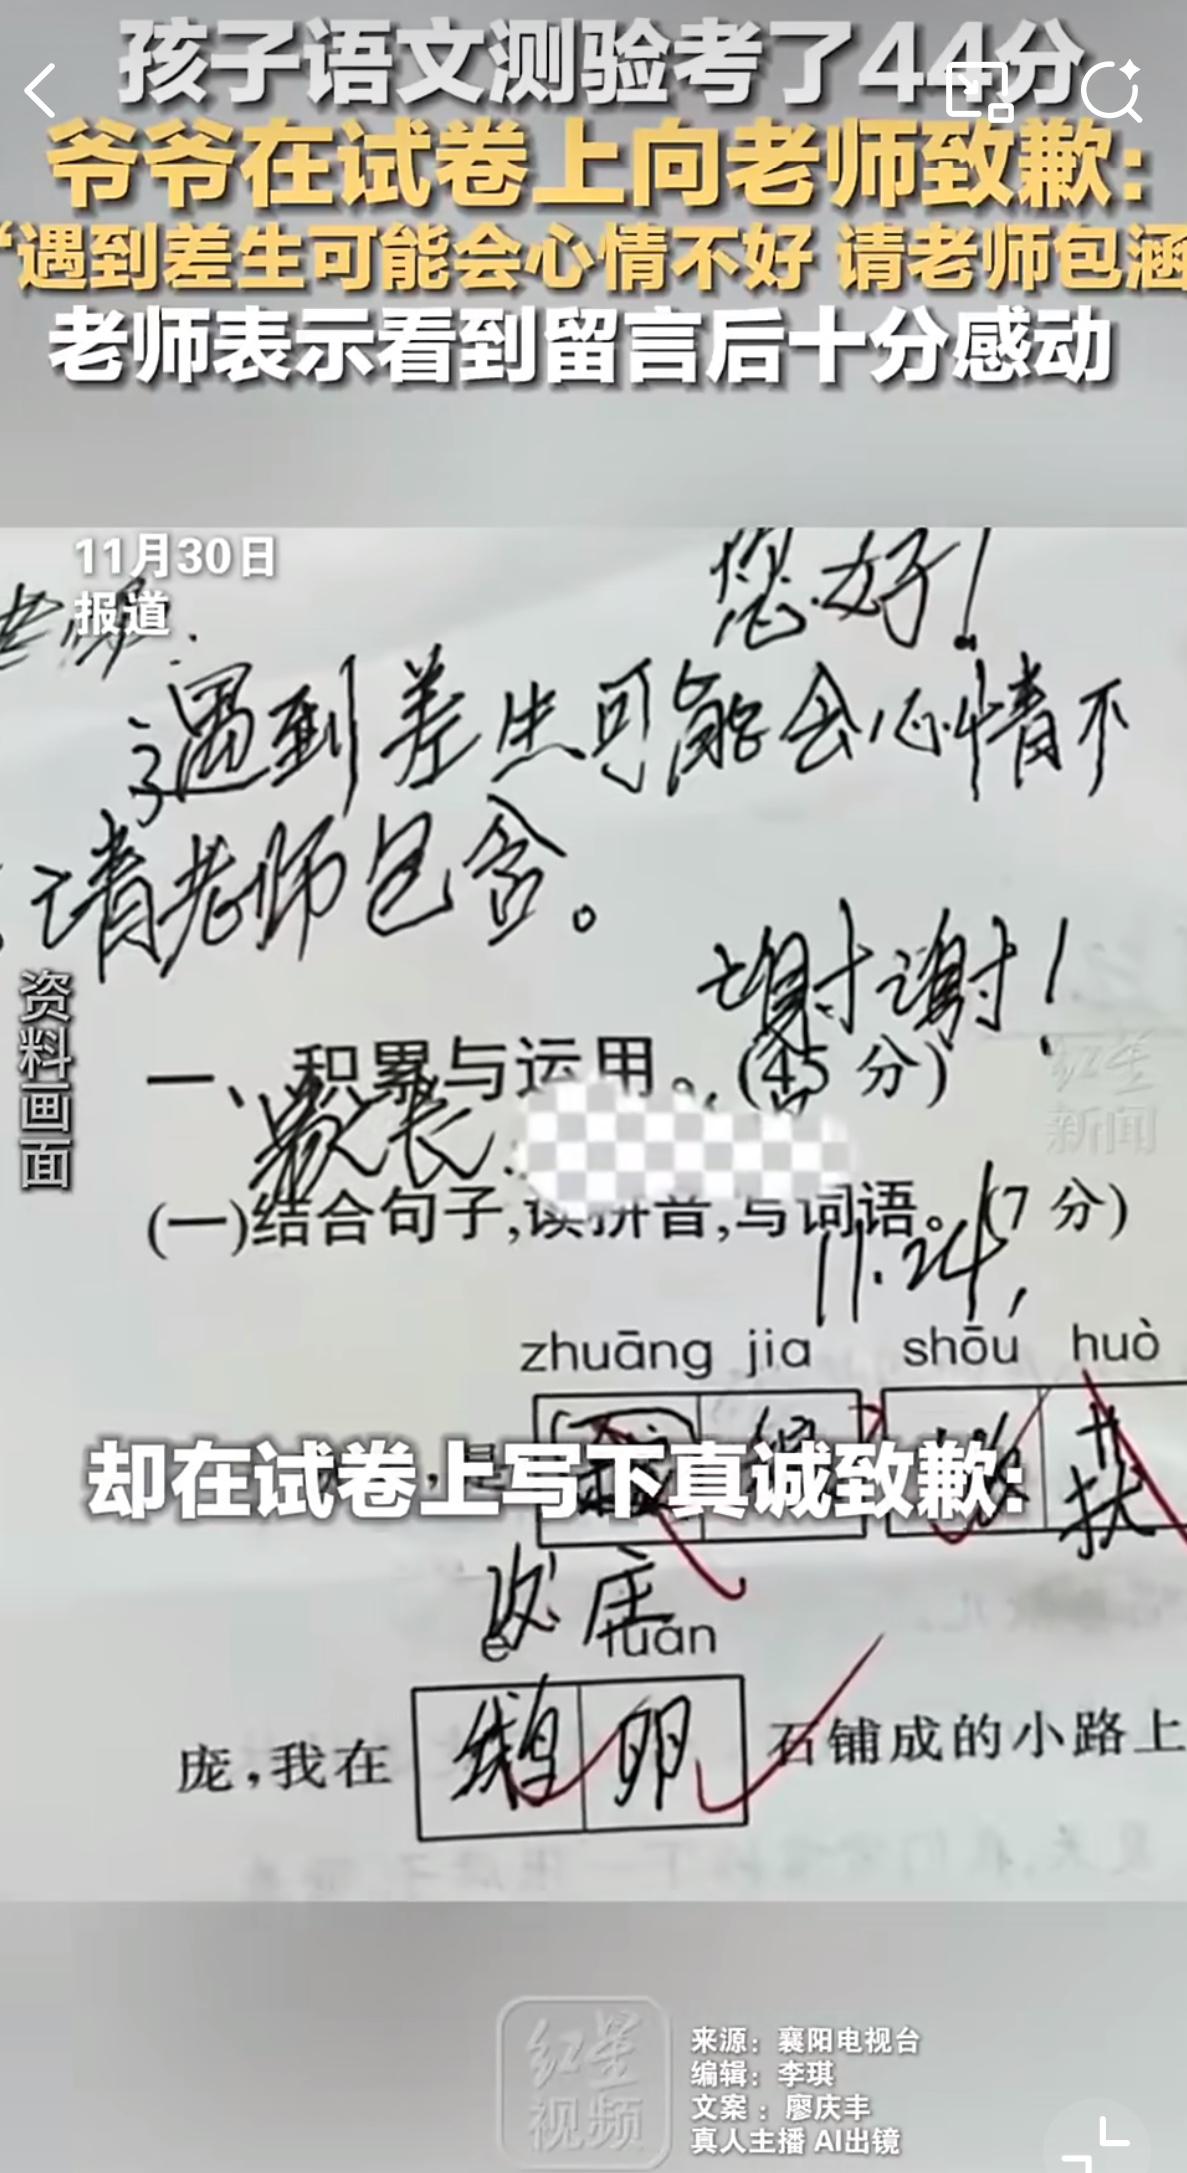 孩子语文测验考了44分
爷爷在试卷上向老师致歉:
“遇到差生可能会心情不好 请老师包涵
老师表示看到留言后十分感动
11月30日
报道
老师:
您好!
遇到差生可能会心情不
请老师包含。
谢谢!
资料画面
一、积累与运用。(45分)
家长:
红星
新闻
(一)结合句子,读拼音,写词语。(7分)
11.24
zhuāng jia shōu huò
是
却在试卷上写下真诚致歉:
é luǎn
庞,我在鹅卵石铺成的小路上
红星
视频
来源:襄阳电视台
编辑:李琪
文案:廖庆丰
真人主播 AI出镜